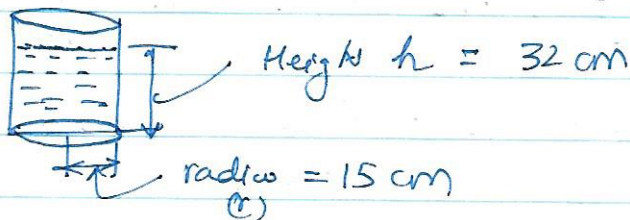 Height h = 32 cm
radius = 15 cm
(r)